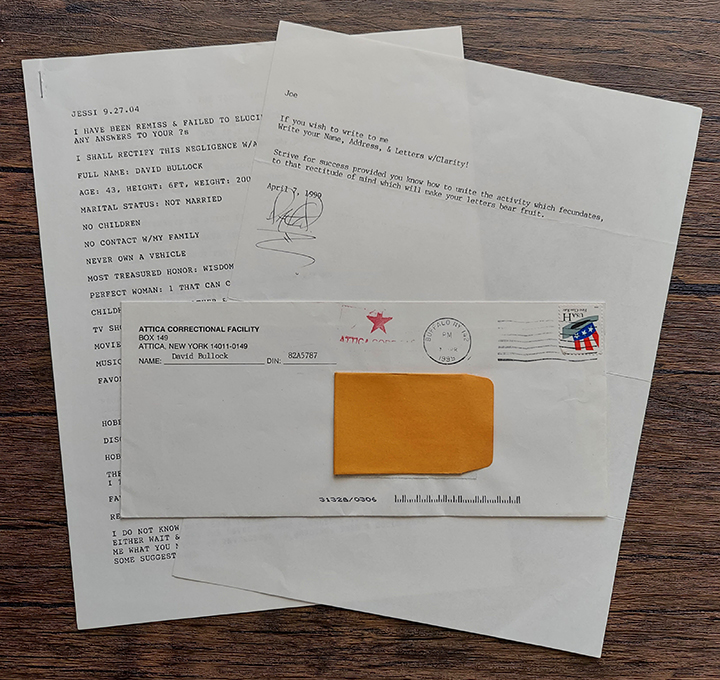 JESSI 9.27.04
I HAVE BEEN REMISS & FAILED TO
ANY ANSWERS TO YOUR ?s
I SHALL RECTIFY THIS NEGLIGENCE
FULL NAME: DAVID BULLOCK
AGE: 43, HEIGHT: 6FT, WEIGHT: 200
MARITAL STATUS: NOT MARRIED
NO CHILDREN
NO CONTACT W/MY FAMILY
NEVER OWN A VEHICLE
MOST TREASURED HONOR: WISDOM
PERFECT WOMAN: 1 THAT CAN
TV
I DO NOT KNOW
EITHER WAIT &
ME WHAT YOU
SOME
Joe
If you wish to write to me
Write your Name, Address, & Letters w/Clarity!
Strive for success provided you know how to unite the activity which fecundates,
to that rectitude of mind which will make your letters bear fruit.
April 7, 1999
ATTICA CORRECTIONAL FACILITY
BOX 149
ATTICA, NEW YORK 14011-0149
NAME: David Bullock DIN: 82A5787
BUFFALO NY
PM
USA H
31328/0306